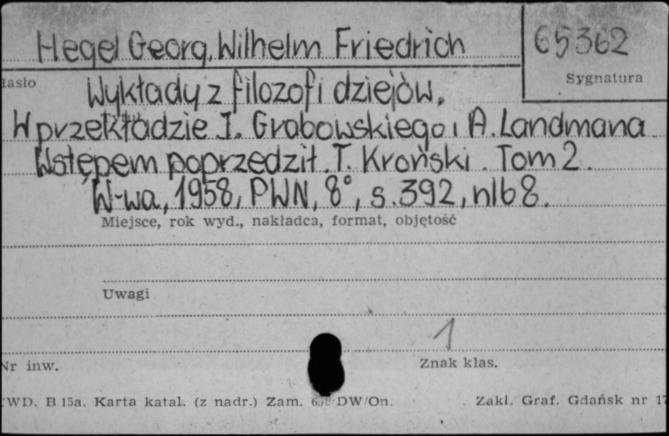 Hegel Georg, Wilhelm Friedrich
65362
Hasło
Sygnatura
Wykłady z filozofi dziejów.
W przekładzie J. Grabowskiego i A. Landmana
Wstępem poprzedził T. Kroński. Tom 2.
W-wa, 1958, PWN, 8°, s. 392, nlb 8.
Miejsce, rok wyd., nakładca, format, objętość
Uwagi
1
Nr inw.
Znak klas.
WD. B 15a. Karta katal. (z nadr.) Zam. DW/On.
Zakł. Graf. Gdańsk nr 17